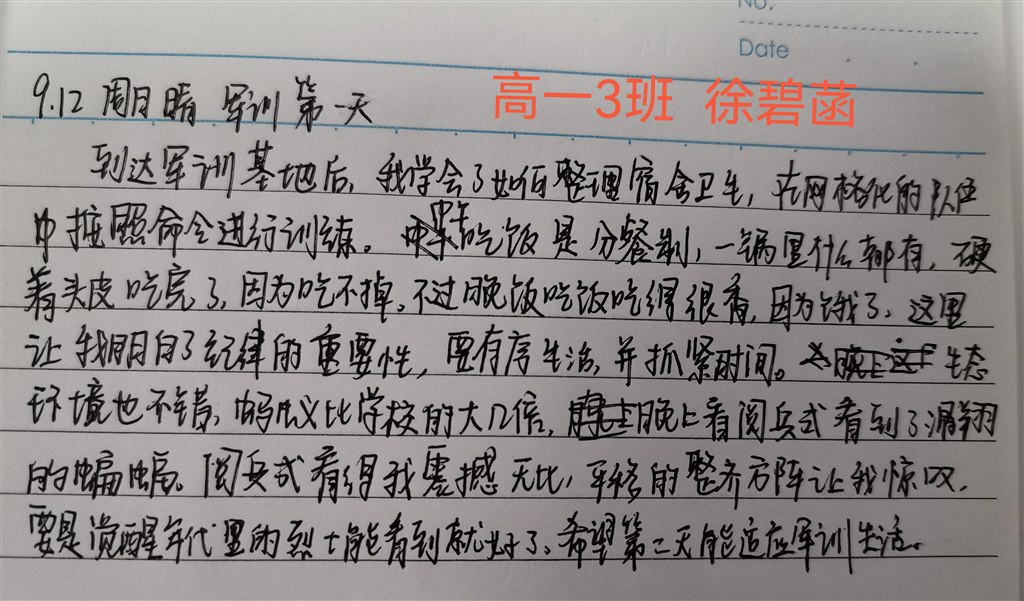 No.
Date
高一3班 徐碧菡
9.12 周日 晴 军训第一天
到达军训基地后，我学会了如何整理宿舍卫生，在网格化的队伍
中按照命令进行训练。中午吃饭是分餐制，一锅里什么都有，硬
着头皮吃完了，因为吃不掉。不过晚饭吃饭吃得很香，因为饿了。这里
让我明白了纪律的重要性，要有序生活，并抓紧时间。生态
环境也不错，蚂蚁比学校的大几倍，晚上看阅兵式看到了滑翔
的蝙蝠。阅兵式看得我震撼无比，平移的整齐方阵让我惊叹，
要是觉醒年代里的烈士能看到就好了。希望第二天能适应军训生活。